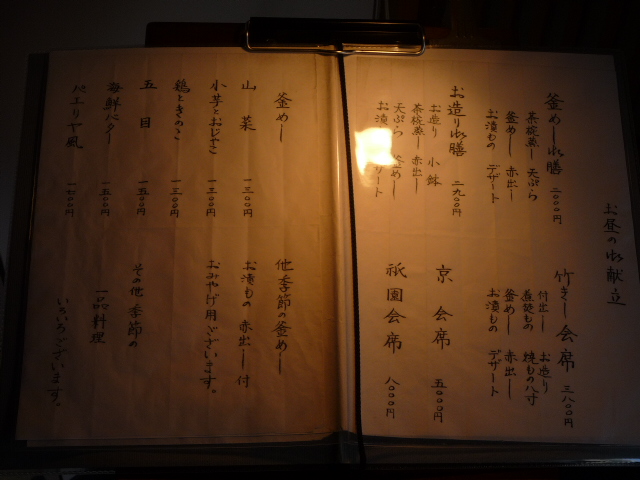 お昼の御献立
釜めし御膳 二〇〇〇円
茶碗蒸し 天ぷら
釜めし 赤出し
お漬もの デザート
お造り御膳 二九〇〇円
お造り 小鉢
茶碗蒸し 赤出し
天ぷら 釜めし
お漬 デザート
竹きし会席 三八〇〇円
付出し お造り
蓋篭もの 焼もの八寸
釜めし 赤出し
お漬もの デザート
京会席 五〇〇〇円
祇園会席 八〇〇〇円
釜めし
山菜 一三〇〇円
小芋とおじゃこ 一三〇〇円
鶏ときのこ 一三〇〇円
五目 一五〇〇円
海鮮バター 一五〇〇円
パエリヤ風 一七〇〇円
他季節の釜めし
お漬もの 赤出し付
おみやげ用ございます。
その他季節の
一品料理
いろいろございます。